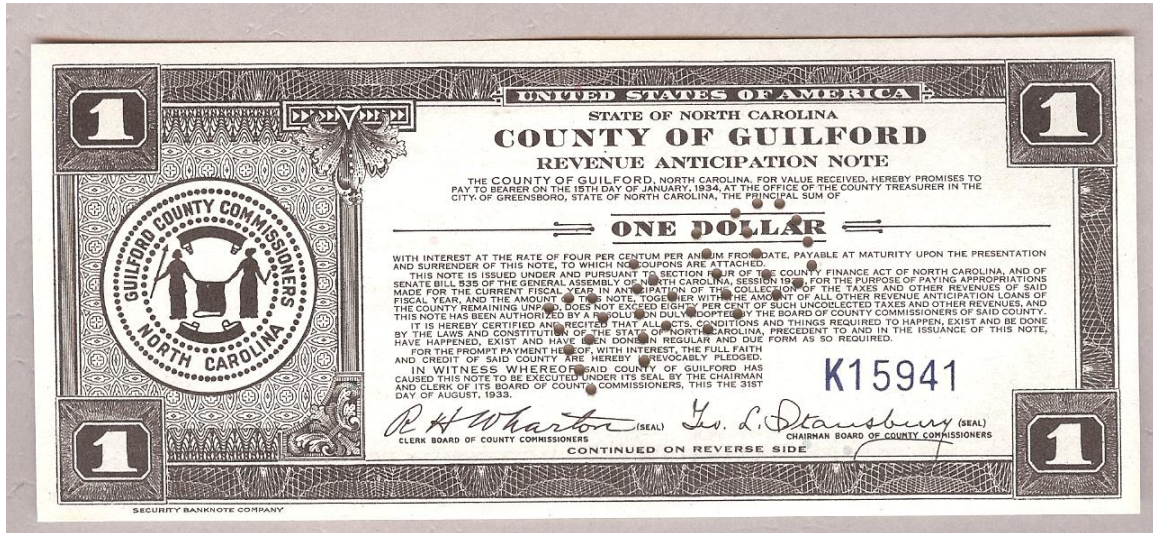 1
1
UNITED STATES OF AMERICA
STATE OF NORTH CAROLINA
COUNTY OF GUILFORD
REVENUE ANTICIPATION NOTE
THE COUNTY OF GUILFORD, NORTH CAROLINA, FOR VALUE RECEIVED, HEREBY PROMISES TO
PAY TO BEARER ON THE 15TH DAY OF JANUARY, 1934, AT THE OFFICE OF THE COUNTY TREASURER IN THE
CITY OF GREENSBORO, STATE OF NORTH CAROLINA, THE PRINCIPAL SUM OF
ONE DOLLAR
GUILFORD COUNTY COMMISSIONERS
NORTH CAROLINA
WITH INTEREST AT THE RATE OF FOUR PER CENTUM PER ANNUM FROM DATE, PAYABLE AT MATURITY UPON THE PRESENTATION
AND SURRENDER OF THIS NOTE, TO WHICH NO COUPONS ARE ATTACHED.
THIS NOTE IS ISSUED UNDER AND PURSUANT TO SECTION FOUR OF THE COUNTY FINANCE ACT OF NORTH CAROLINA, AND OF
SENATE BILL 535 OF THE GENERAL ASSEMBLY OF NORTH CAROLINA, SESSION FOR THE PURPOSE OF PAYING APPROPRIATIONS
MADE FOR THE CURRENT FISCAL YEAR IN ANTICIPATION OF THE COLLECTION OF THE TAXES AND OTHER REVENUES OF SAID
FISCAL YEAR, AND THE AMOUNT OF THIS NOTE, TOGETHER WITH THE AMOUNT OF ALL OTHER REVENUE ANTICIPATION LOANS OF
THE COUNTY REMAINING UNPAID, DOES NOT EXCEED EIGHTY PER CENT OF SUCH UNCOLLECTED TAXES AND OTHER REVENUES, AND
THIS NOTE HAS BEEN AUTHORIZED BY A RESOLUTION DULY ADOPTED BY THE BOARD OF COUNTY COMMISSIONERS OF SAID COUNTY.
IT IS HEREBY CERTIFIED AND RECITED THAT ALL ACTS, CONDITIONS AND THINGS REQUIRED TO HAPPEN, EXIST AND BE DONE
BY THE LAWS AND CONSTITUTION OF THE STATE OF NORTH CAROLINA, PRECEDENT TO AND IN THE ISSUANCE OF THIS NOTE,
HAVE HAPPENED, EXIST AND HAVE BEEN DONE IN REGULAR AND DUE FORM AS SO REQUIRED.
FOR THE PROMPT PAYMENT HEREOF, WITH INTEREST, THE FULL FAITH
AND CREDIT OF SAID COUNTY ARE HEREBY IRREVOCABLY PLEDGED.
IN WITNESS WHEREOF, SAID COUNTY OF GUILFORD HAS
CAUSED THIS NOTE TO BE EXECUTED UNDER ITS SEAL BY THE CHAIRMAN
AND CLERK OF ITS BOARD OF COUNTY COMMISSIONERS, THIS THE 31ST
DAY OF AUGUST, 1933.
K15941
R H Wharton (SEAL) Geo. L. Stansbury (SEAL)
CLERK BOARD OF COUNTY COMMISSIONERS CHAIRMAN BOARD OF COUNTY COMMISSIONERS
CONTINUED ON REVERSE SIDE
1
1
SECURITY BANKNOTE COMPANY